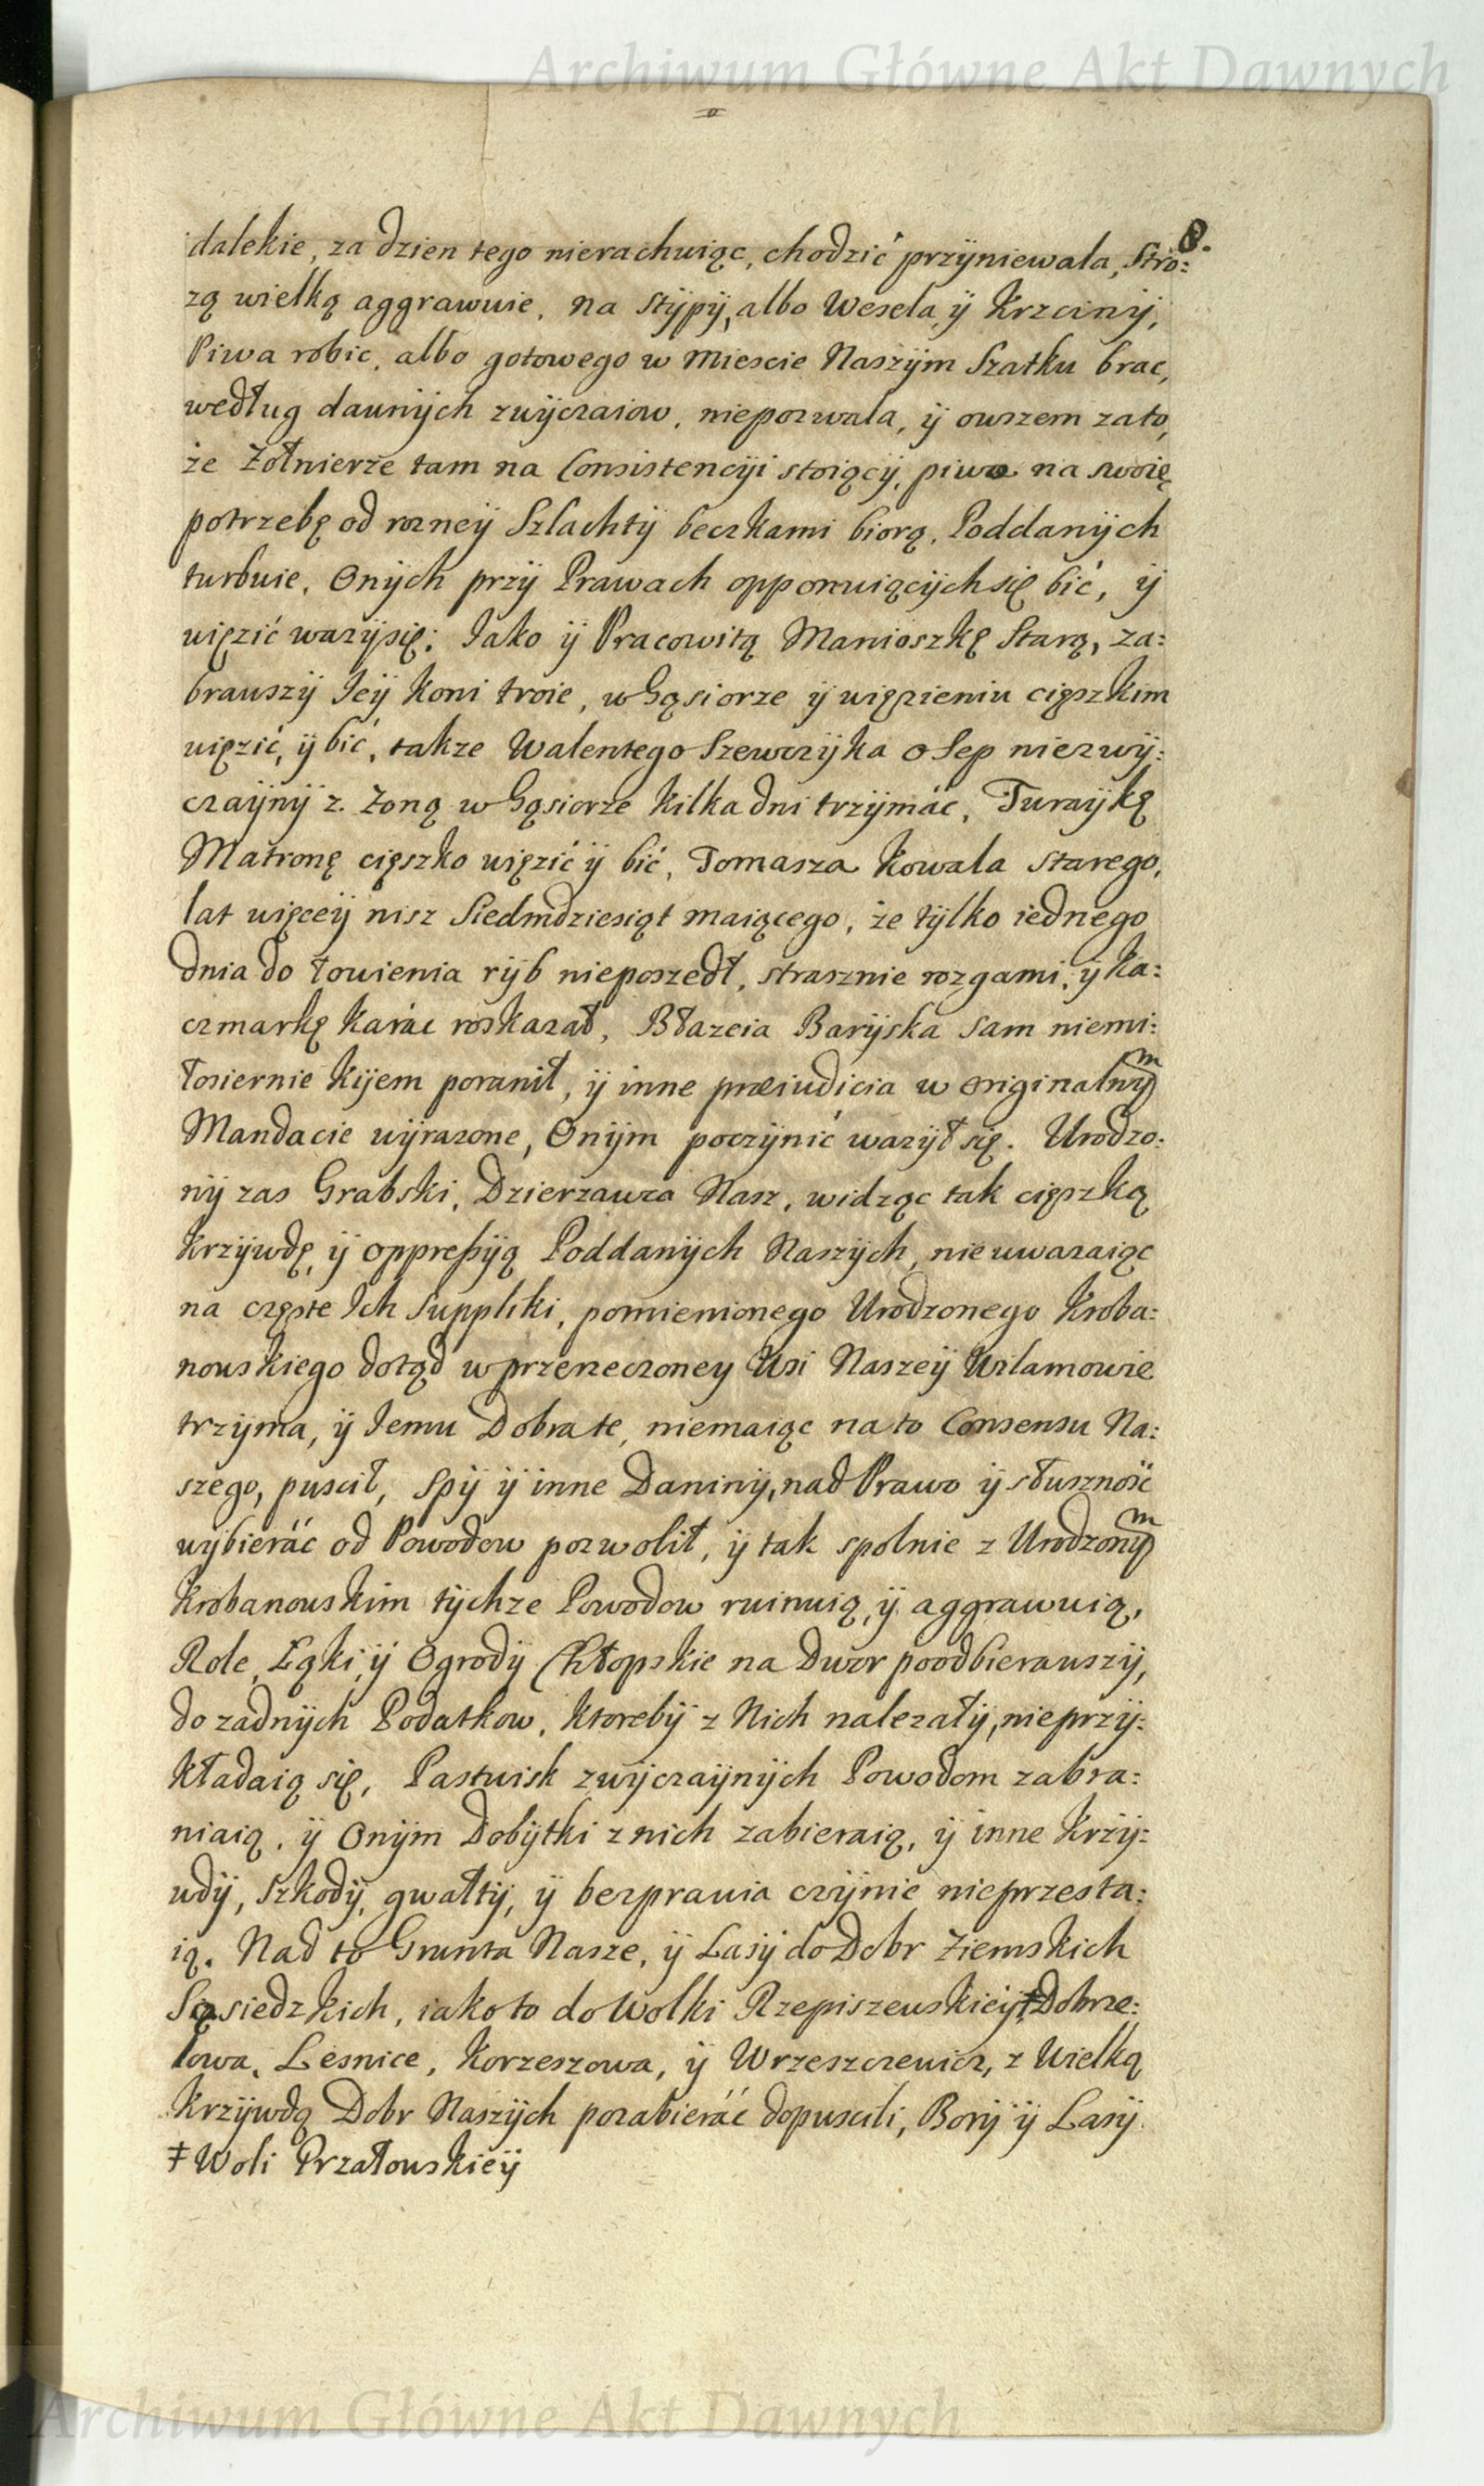 Archiwum Główne Akt Dawnych
8.
dalekie, za dzien tego nierachuiąc, chodzić przÿniewala, Stro:
zą wielką aggrawuie, na Stÿpÿ, albo Wesela ÿ Krzcinÿ,
Piwa robic, albo gotowego w Miescie Naszÿm Szatku brac,
według daunÿch zwÿczaiow, niepozwala, ÿ owszem zato,
że Żołnierze tam na Consistencÿi stoiącÿ, piwa na swoię
potrzebę od rozneÿ Szlachtÿ beczkami biorą, Poddanÿch
turbuie, Onÿch przÿ Prawach opponuiącÿch się bić, ÿ
uięzić wazÿsię: Iako ÿ Pracowitą Manioszkę Starą, za:
brauszÿ Ieÿ koni troie, w Gąsiorze ÿ uięzieniu cięszkim
uięzić, ÿ bić, takze Walentego Szewczÿka o Sep niezwÿ:
czaÿnÿ z Żoną w Gąsiorze kilka dni trzÿmác, Turzÿkę
Matronę cięszko uięzić ÿ bić, Tomasza Kowala starego,
lat uięceÿ nisz Siedmdziesiąt maiącego, że tÿlko iednego
dnia do łowienia rÿb nieposzedł, strasznie rozgami, ÿ ka:
czmarkę karác roskazał, Błazeia Barÿska sam niemi:
łosiernie kijem poranił, ÿ inne præiudicia w originalnÿm
Mandacie uÿrazone, Onÿm poczÿnić wazÿł się. Urodzo:
nÿ zas Grabski, Dzierzawca Nasz, widząc tak cięszką
krzÿwdę, ÿ oppreßÿą Poddanÿch Naszÿch, nie uwazaiąc
na częste Ich Suppliki, pomienionego Urodzonego Kroba:
nouskiego dotąd w przerzeczoney Wsi Naszeÿ Wilamowie
trzÿma, ÿ Iemu Dobra te, niemaiąc na to Consensu Na:
szego, puscił, Spÿ ÿ inne Daninÿ, nad Prawo ÿ słusznośc
wÿbieráć od Powodow pozwolił, ÿ tak spolnie z Urodzonÿm
Krobanouskim tÿchze Powodow ruinuią, ÿ aggrawuią,
Role, Łąki, ÿ Ogrodÿ Chłopskie na Dwor poodbierauszÿ,
do zadnÿch Podatkow, ktorebÿ z Nich nalezałÿ, nieprzÿ:
kładaią się, Pastwisk zwÿczaÿnÿch Powodom zabra:
niaią, ÿ Onÿm Dobÿtki z nich zabieraią, ÿ inne krzÿ:
udÿ, Szkodÿ, gwałtÿ, ÿ bezprawia czÿnic nieprzesta:
ią. Nad to Grunta Nasze, ÿ Lasÿ do Dobr Ziemskich
Sąsiedzkich, iako to do Wolki Rzepiszeuskieÿ,‡ Dobrze:
lowa, Lesnice, Korzeszowa, ÿ Wrzeszczewicz, z Wielką
krzÿwdą Dobr Naszÿch pozabieráć dopuscili, Borÿ ÿ Lasÿ
‡ Woli Przatouskieÿ
Archiwum Główne Akt Dawnych